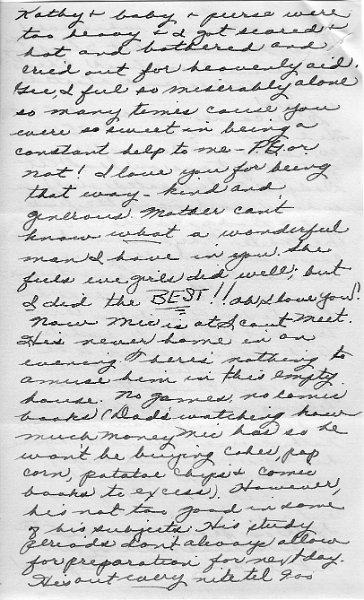 Kathy + baby + purse were
too heavy + I got scared +
hot and bothered and
cried out for heavenly aid.
Gee, I feel so miserably alone
so many times 'cause you
were so sweet in being a
constant help to me - P.G. or
not! I love you for being
that way - kind and
generous. Mother can't
know what a wonderful
man I have in you. She
feels we girls did well, but
I did the BEST!! Oh, I love you!
Now Mic is at Scout Meet.
He's never home in an
evening. There's nothing to
amuse him in this empty
house. No games, no comic
books (Dad's watching how
much money Mic has so he
won't be buying cokes, pop
corn, patatoe chips + comic
books to excess). However,
he's not too good in some
of his subjects. His study
periods don't always allow
for preparation for next day.
He's out every nite til 9:00